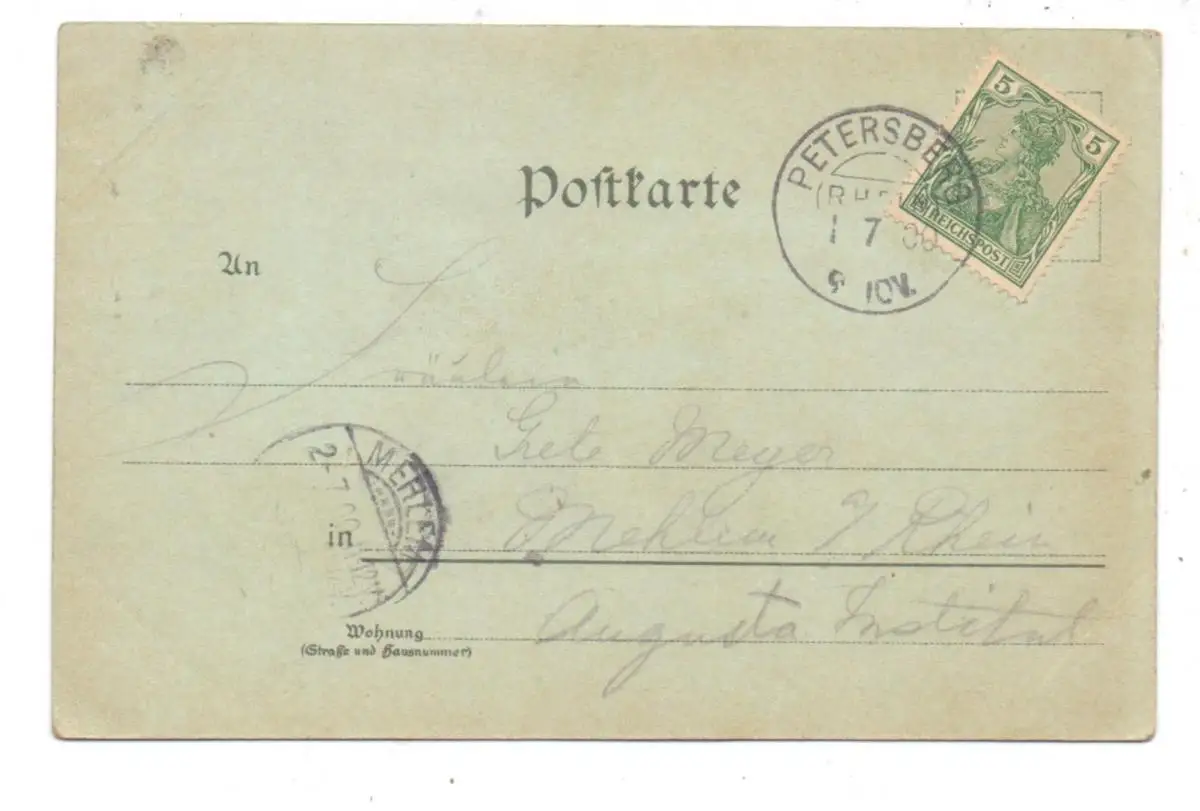 Postkarte
PETERSBERG
(RHE
1 7 00
9-10V.
5 5
REICHSPOST
An
Fräulein
Grete Meyer
MEHLEM
2-7 00
in Mehlem a/ Rhein
Wohnung Augusta Institut
(Straße und Hausnummer)